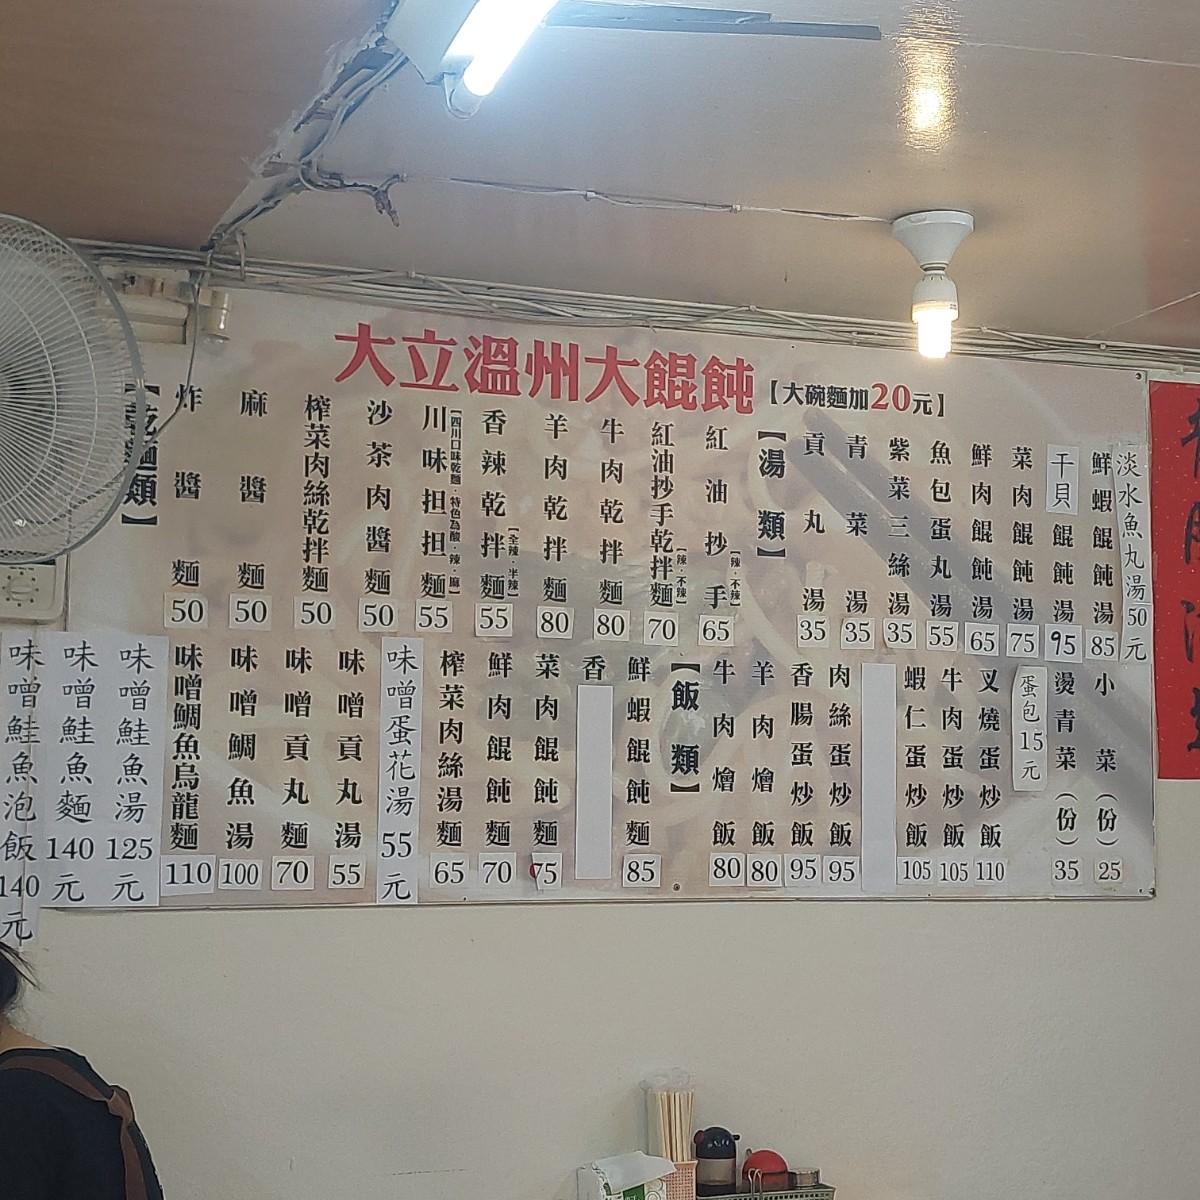 大立溫州大餛飩
【大碗麵加20元】
淡水魚丸湯50元
鮮蝦餛飩湯 85
干貝餛飩湯 95
菜肉餛飩湯 75
鮮肉餛飩湯 65
魚包蛋丸湯 55
紫菜三絲湯 35
青菜湯 35
貢丸湯 35
【湯類】
紅油抄手【辣．不辣】 65
紅油抄手乾拌麵【辣．不辣】 70
牛肉乾拌麵 80
羊肉乾拌麵 80
香辣乾拌麵【全辣．半辣】 55
川味担担麵【四川口味乾麵．特色為酸．辣．麻】 55
沙茶肉醬麵 50
榨菜肉絲乾拌麵 50
麻醬麵 50
炸醬麵 50
【乾麵類】
小菜(份) 25
燙青菜(份) 35
蛋包15元
叉燒蛋炒飯 110
牛肉蛋炒飯 105
蝦仁蛋炒飯 105
肉絲蛋炒飯 95
香腸蛋炒飯 95
羊肉燴飯 80
牛肉燴飯 80
【飯類】
鮮蝦餛飩麵 85
香
菜肉餛飩麵 75
鮮肉餛飩麵 70
榨菜肉絲湯麵 65
味噌蛋花湯55元
味噌貢丸湯 55
味噌貢丸麵 70
味噌鯛魚湯 100
味噌鯛魚烏龍麵 110
味噌鮭魚湯125元
味噌鮭魚麵140元
味噌鮭魚泡飯140元